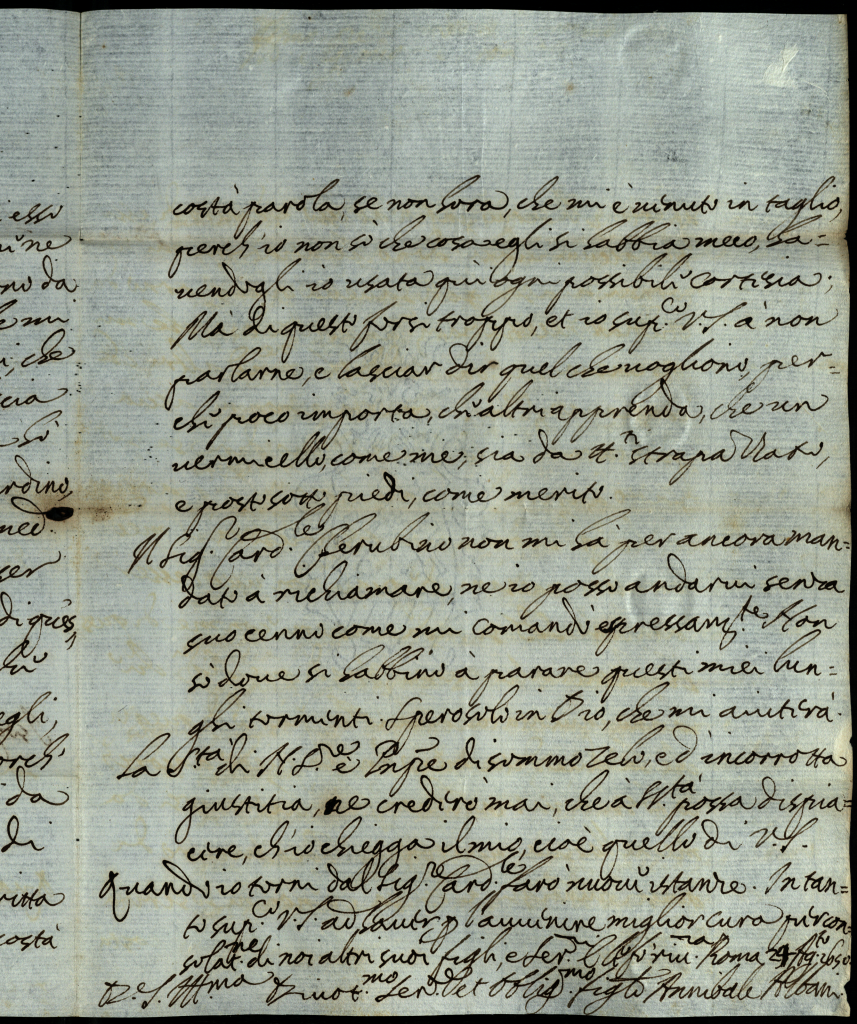 costà parola, se non hora, che mi è uenuto in taglio,
perch'io non sò che cosa egli si habbia meco, ha=
uendogli io usata quì ogni possibile cortesia;
Mà di questo forsi troppo, et io sup.co V.S. à non
parlarne, e lasciar dir quel che uogliono, per=
che poco importa, ch'altri apprenda, che un
uermicello come me, sia da strapazzato,
e posto sott' piedi, come merito.
Il Sig.r Card.le Cherubino non mi hà per ancora man=
dato à richiamare, ne io posso andarui senza
suo cenno come mi comandò espressam.te Non
sò doue si habbino à parare questi miei lun=
ghi tormenti. Spero solo in Dio, che mi aiuterà.
La S.tà di N. S.re è Pnpe di sommo zelo, ed' incorrotta
giustitia, ne crederò mai, che à S. S.tà possa dispia=
cere, ch'io chiegga il mio, cioè quello di V.S.
Quando io torni dal Sig.r Card.le farò nuoue istanze. In tan=
to sup.co V.S. ad hauer p l'auuenire miglior cura per con=
solat.ne di noi altri suoi figli, e Ser.ri Roma Ag.to
D. V. S. Ill.ma Diuot.mo Ser. et oblig.mo figlo Annibale Albani